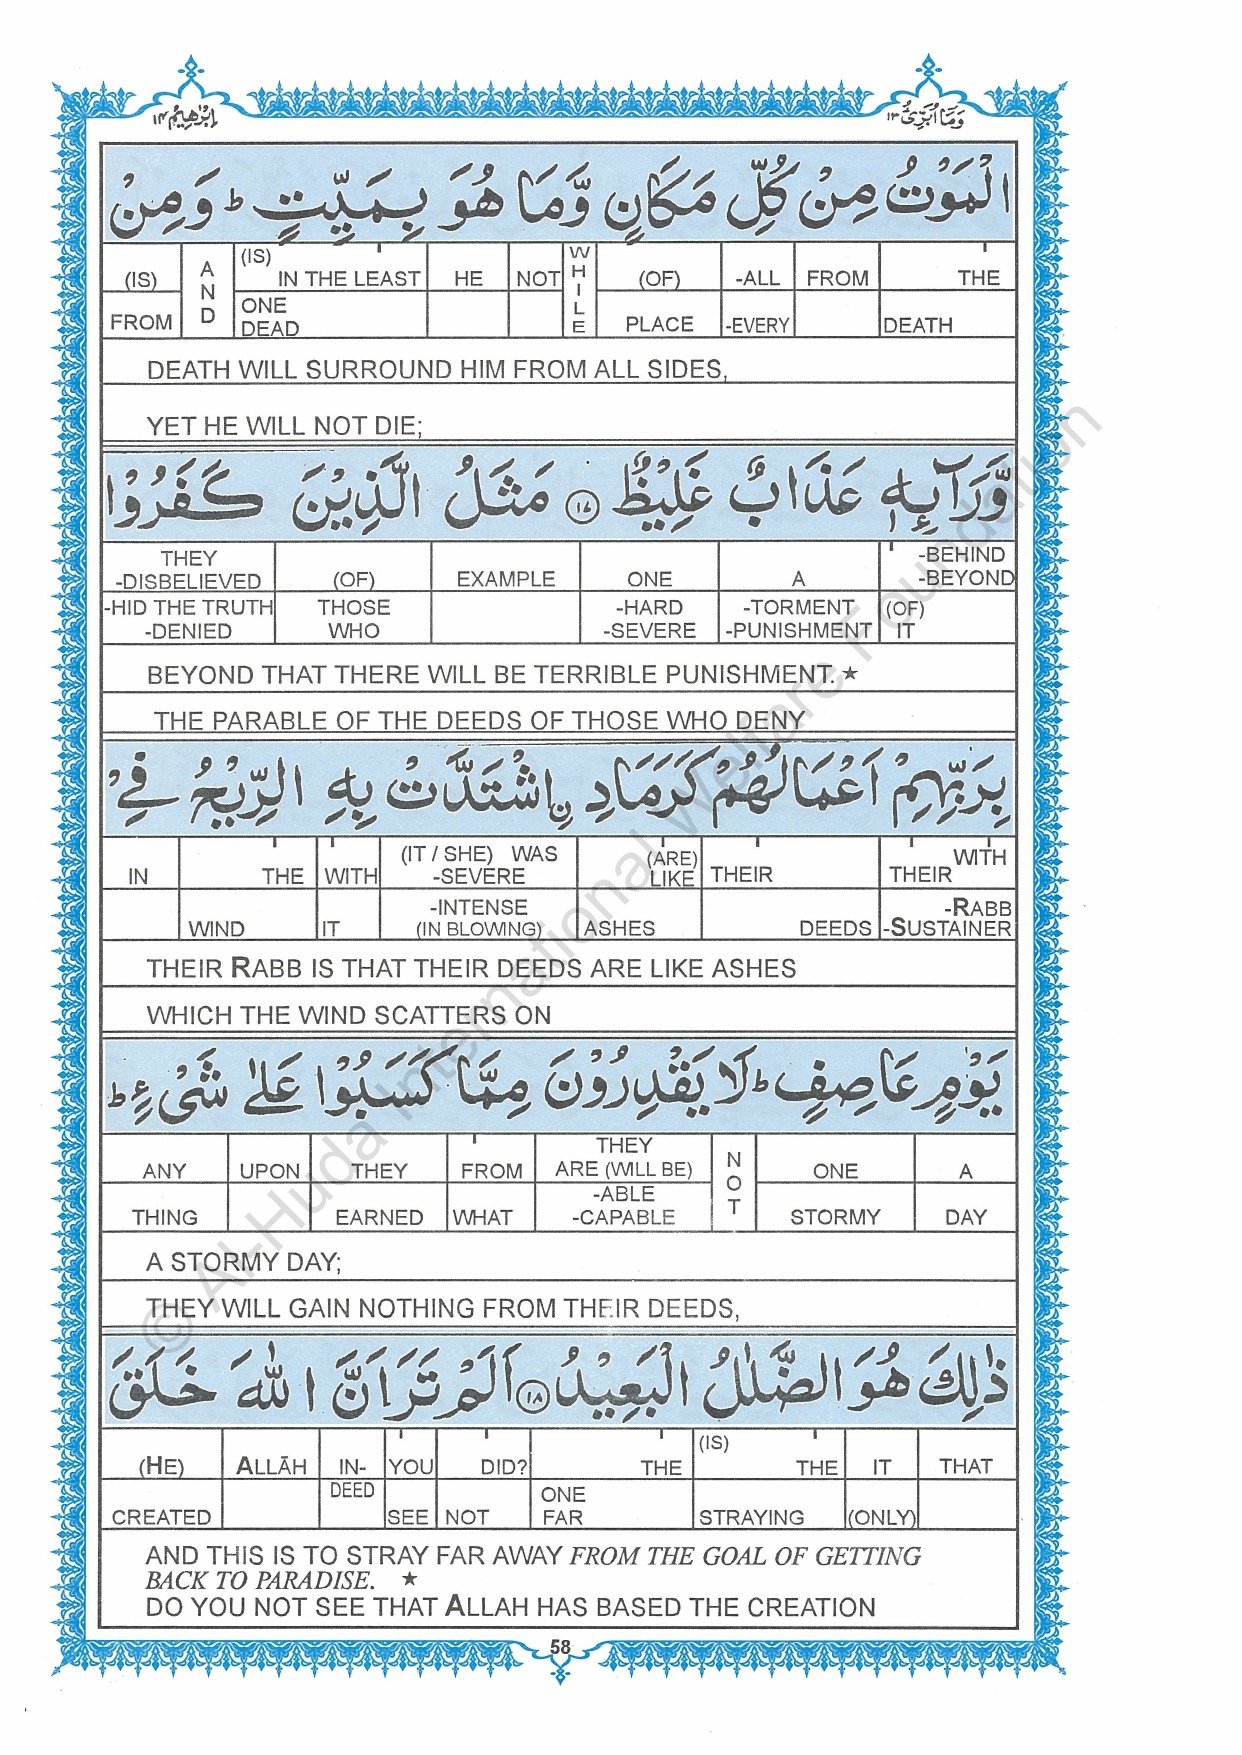 اِبْرٰهِيْم ١٤
وَمَآ اُبَرِّئُ ١٣
الْمَوْتُ مِنْ كُلِّ مَكَانٍ وَّمَا هُوَ بِمَيِّتٍ ؕ وَمِنْ
(IS) AND (IS) IN THE LEAST HE NOT WHILE (OF) -ALL FROM THE
FROM ONE DEAD PLACE -EVERY DEATH
DEATH WILL SURROUND HIM FROM ALL SIDES,
YET HE WILL NOT DIE;
وَّرَآئِهٖ عَذَابٌ غَلِيْظٌ ١٧ مَثَلُ الَّذِيْنَ كَفَرُوْا
THEY -DISBELIEVED (OF) EXAMPLE ONE A -BEHIND -BEYOND
-HID THE TRUTH -DENIED THOSE WHO -HARD -SEVERE -TORMENT -PUNISHMENT (OF) IT
BEYOND THAT THERE WILL BE TERRIBLE PUNISHMENT. ★
THE PARABLE OF THE DEEDS OF THOSE WHO DENY
بِرَبِّهِمْ اَعْمَالُهُمْ كَرَمَادِ ۨاشْتَدَّتْ بِهِ الرِّيْحُ فِيْ
IN THE WITH (IT / SHE) WAS -SEVERE (ARE) LIKE THEIR WITH THEIR
WIND IT -INTENSE (IN BLOWING) ASHES DEEDS -RABB -SUSTAINER
THEIR RABB IS THAT THEIR DEEDS ARE LIKE ASHES
WHICH THE WIND SCATTERS ON
يَوْمٍ عَاصِفٍ ؕ لَا يَقْدِرُوْنَ مِمَّا كَسَبُوْا عَلٰى شَيْءٍ ؕ
ANY UPON THEY FROM THEY ARE (WILL BE) NOT ONE A
THING EARNED WHAT -ABLE -CAPABLE STORMY DAY
A STORMY DAY;
THEY WILL GAIN NOTHING FROM THEIR DEEDS,
ذٰلِكَ هُوَ الضَّلٰلُ الْبَعِيْدُ ١٨ اَلَمْ تَرَ اَنَّ اللّٰهَ خَلَقَ
(HE) ALLĀH IN-DEED YOU DID? THE (IS) THE IT THAT
CREATED SEE NOT ONE FAR STRAYING (ONLY)
AND THIS IS TO STRAY FAR AWAY FROM THE GOAL OF GETTING
BACK TO PARADISE. ★
DO YOU NOT SEE THAT ALLAH HAS BASED THE CREATION
58
© Al-Huda International Welfare Foundation